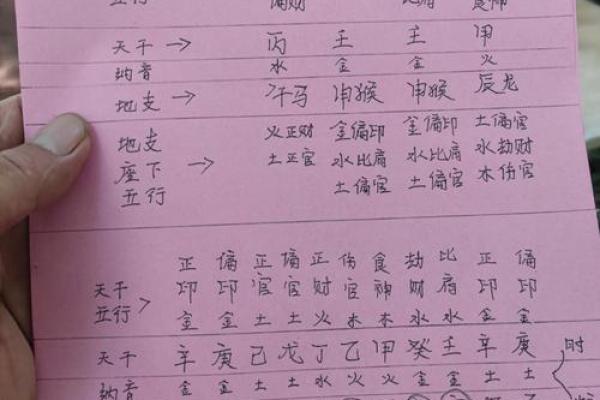 五行 偏财 比肩 食神
天干 → 丙 壬 壬 甲
纳音 水 金 金 火
地支 → 午马 申猴 申猴 辰龙
地支 火正财 金偏印 金偏印 土偏官
座下 → 土正官 水比肩 水比肩 水劫财
五行 土偏官 土偏官 木伤官
正 偏 正 偏 正 伤 食 劫 比 正 偏
天干 印 印 官 官 财 官 神 财 肩 印 印
五行 > 金 金 土 土 火 木 木 水 水 金 金
天干 辛 庚 己 戊 丁 乙 甲 癸 壬 辛 庚 时
纳音 金 金 土 土 水 火 火 金 金 土 土